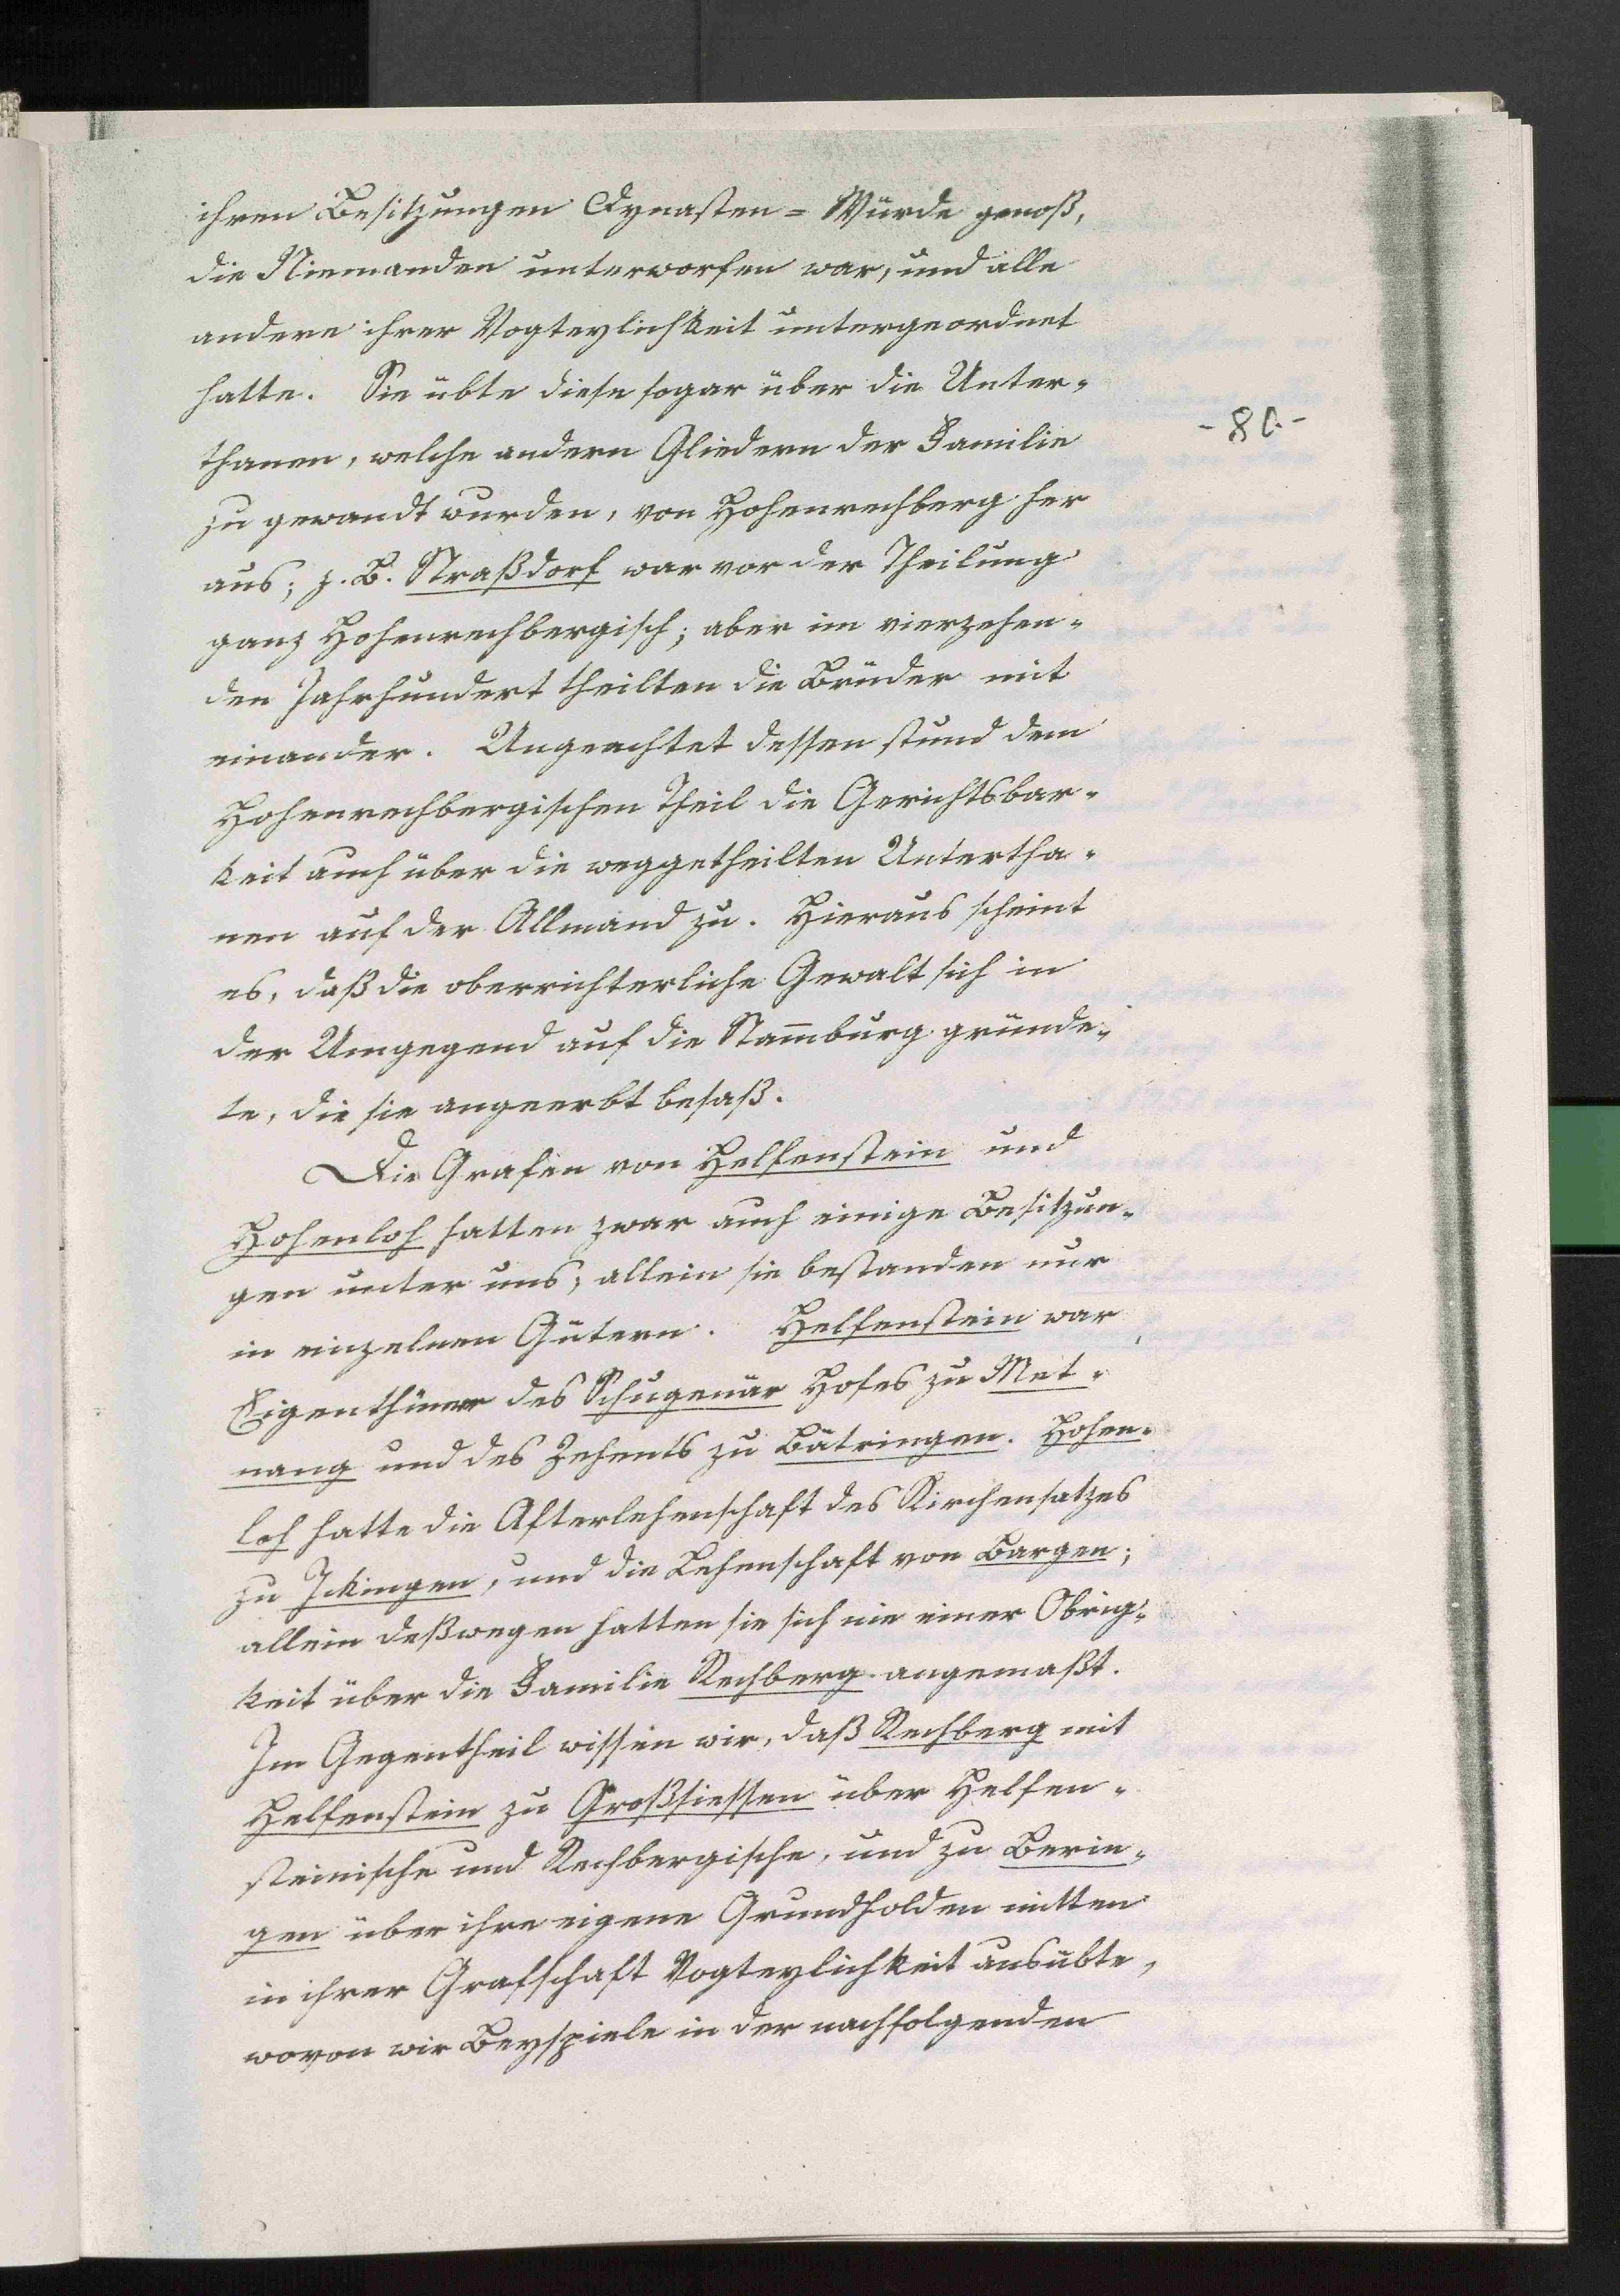 ihren Besitzungen Dynasten-Würde genoß,
die Niemanden unterworfen war, und alle
andere ihrer Vogteylichkeit untergeordnet
hatte. Sie übte diese sogar über die Unter-
thanen, welche andern Gliedern der Familie
zu gewandt wurden, von Hohenrechberg her
-80-
aus; z. B. Straßdorf war vor der Theilung
ganz Hohenrechbergisch; aber im vierzehen-
den Jahrhundert theilten die Brüder mit
einander. Ungeachtet dessen stund dem
Hohenrechbergischen Theil die Gerichtsbar-
keit auch über die weggetheilten Untertha-
nen auf der Allmand zu. Hieraus scheint
es, daß die oberrichterliche Gewalt sich in
der Umgegend auf die Stam̅burg gründe-
te, die sie angeerbt besaß.
Die Grafen von Helfenstein und
Hohenloh hatten zwar auch einige Besitzun-
gen unter uns; allein sie bestanden nur
in einzelnen Gütern. Helfenstein war
Eigenthümer des Schugenär Hofes zu Met-
nang und des Zehents zu Bätringen. Hohen-
loh hatte die Afterlehenschaft des Kirchensatzes
zu Ickingen, und die Lehenschaft von Bargen;
allein deßwegen hatten sie sich nie einer Obrig-
keit über die Familie Rechberg angemaßt.
Im Gegentheil wissen wir, daß Rechberg mit
Helfenstein zu Großsiessen über Helfen-
steinische und Rechbergische, und zu Berin-
gen über ihre eigene Grundholden mitten
in ihrer Grafschaft Vogteylichkeit ausübte,
wovon wir Beyspiele in der nachfolgenden